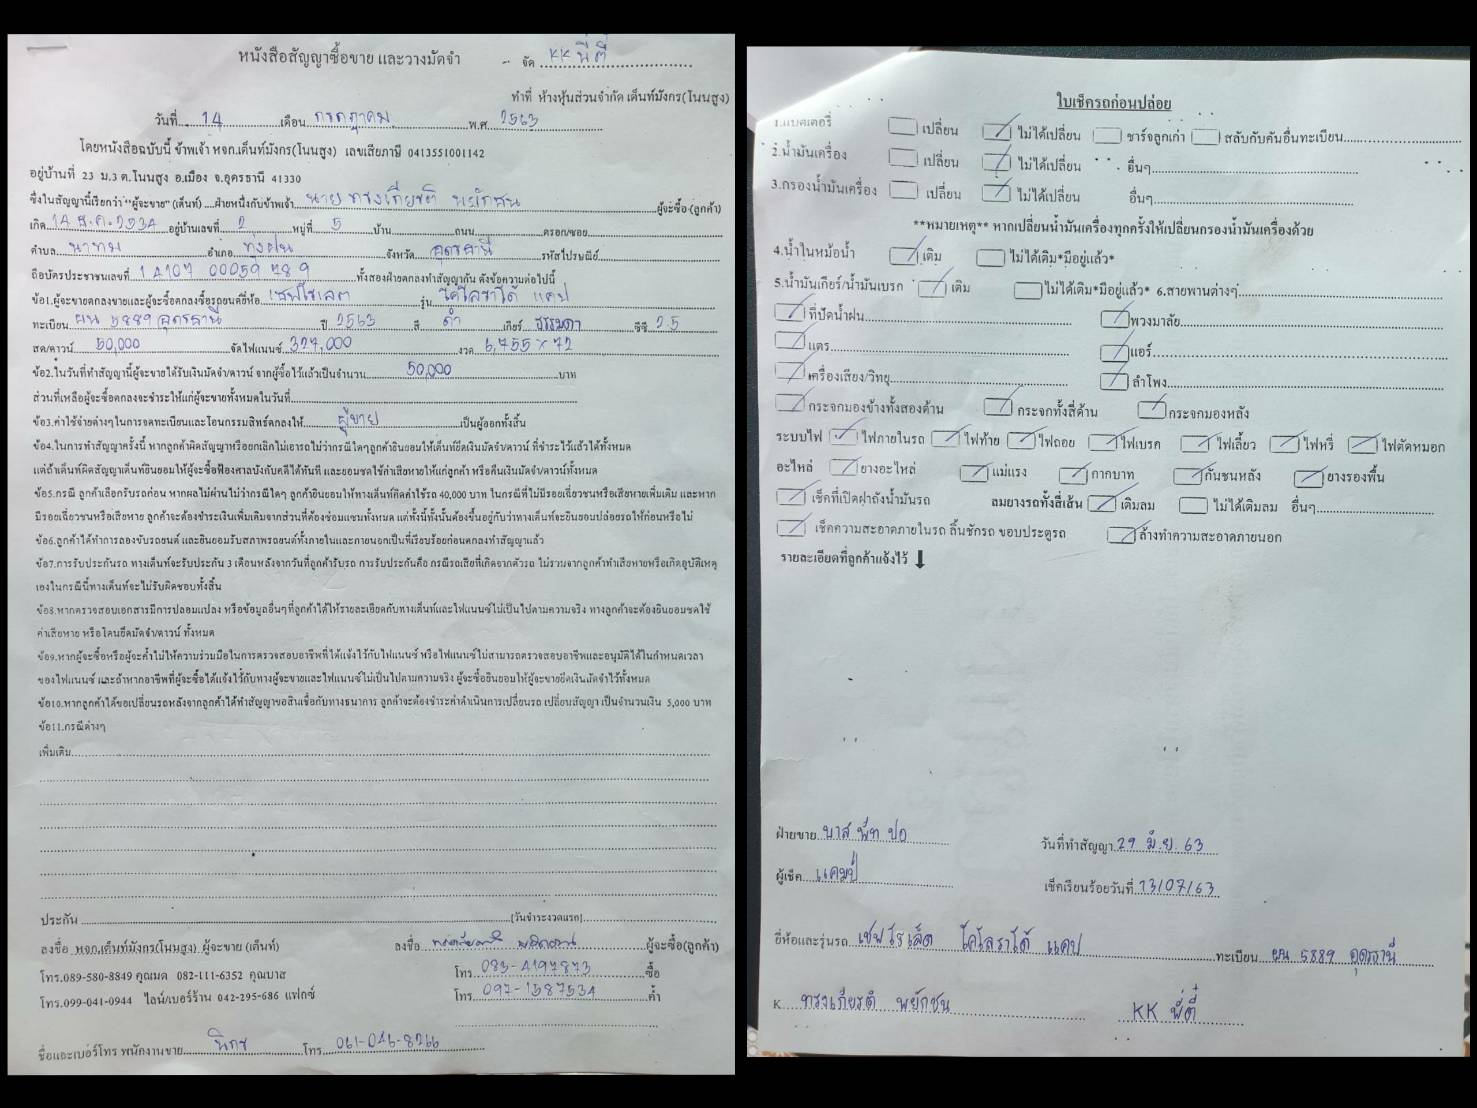 หนังสือสัญญาซื้อขาย และวางมัดจำ
จัด KK พี่ตี๋
ทำที่ ห้างหุ้นส่วนจำกัด เต็นท์มังกร(โนนสูง)
วันที่ 14 เดือน กรกฎาคม พ.ศ. 2563
โดยหนังสือฉบับนี้ ข้าพเจ้า หจก.เต็นท์มังกร(โนนสูง) เลขเสียภาษี 0413551001142
อยู่บ้านที่ 23 ม.3 ต.โนนสูง อ.เมือง จ.อุดรธานี 41330
ซึ่งในสัญญานี้เรียกว่า "ผู้จะขาย" (เต็นท์) ....ฝ่ายหนึ่งกับข้าพเจ้า นาย ทรงเกียรติ พยัคฆน ผู้จะซื้อ (ลูกค้า)
เกิด 14 ธ.ค. 2534 อยู่บ้านเลขที่ 2 หมู่ที่ 5 บ้าน ถนน ตรอก/ซอย
ตำบล นาทม อำเภอ ทุ่งฝน จังหวัด อุดรธานี รหัสไปรษณีย์
ถือบัตรประชาชนเลขที่ 1 4107 00059 789 ทั้งสองฝ่ายตกลงทำสัญญากัน ดังข้อความต่อไปนี้
ข้อ1.ผู้จะขายตกลงขายและผู้จะซื้อตกลงซื้อรถยนต์ยี่ห้อ เชฟโรเลต รุ่น โคโลราโด้ แคป
ทะเบียน ผน 5889 อุดรธานี ปี 2563 สี ดำ เกียร์ ธรรมดา ซีซี 2.5
สด/ดาวน์ 50,000 จัดไฟแนนซ์ 327,000 งวด 6,755 x 72
ข้อ2.ในวันที่ทำสัญญานี้ผู้จะขายได้รับเงินมัดจำ/ดาวน์ จากผู้ซื้อไว้แล้วเป็นจำนวน 50,000 บาท
ส่วนที่เหลือผู้จะซื้อตกลงจะชำระให้แก่ผู้จะขายทั้งหมดในวันที่
ข้อ3.ค่าใช้จ่ายต่างๆในการจดทะเบียนและโอนกรรมสิทธิ์ตกลงให้ ผู้ขาย เป็นผู้ออกทั้งสิ้น
ข้อ4.ในการทำสัญญาครั้งนี้ หากลูกค้าผิดสัญญาหรือยกเลิกไม่เอารถไม่ว่ากรณีใดๆลูกค้ายินยอมให้เต็นท์ยึดเงินมัดจำ/ดาวน์ ที่ชำระไว้แล้วได้ทั้งหมด
แต่ถ้าเต็นท์ผิดสัญญาเต็นท์ยินยอมให้ผู้จะซื้อฟ้องศาลบังคับคดีได้ทันที และยอมชดใช้ค่าเสียหายให้แก่ลูกค้า หรือคืนเงินมัดจำ/ดาวน์ทั้งหมด
ข้อ5.กรณี ลูกค้าเลือกรับรถก่อน หากผลไม่ผ่านไม่ว่ากรณีใดๆ ลูกค้ายินยอมให้ทางเต็นท์คิดค่าใช้รถ 40,000 บาท ในกรณีที่ไม่มีรอยเฉี่ยวชนหรือเสียหายเพิ่มเติม และหาก
มีรอยเฉี่ยวชนหรือเสียหาย ลูกค้าจะต้องชำระเงินเพิ่มเติมจากส่วนที่ต้องซ่อมแซมทั้งหมด แต่ทั้งนี้ทั้งนั้นต้องขึ้นอยู่กับว่าทางเต็นท์จะยินยอมปล่อยรถให้ก่อนหรือไม่
ข้อ6.ลูกค้าได้ทำการลองขับรถยนต์ และยินยอมรับสภาพรถยนต์ทั้งภายในและภายนอกเป็นที่เรียบร้อยก่อนตกลงทำสัญญาแล้ว
ข้อ7.การรับประกันรถ ทางเต็นท์จะรับประกัน 3 เดือนหลังจากวันที่ลูกค้ารับรถ การรับประกันคือ กรณีรถเสียที่เกิดจากตัวรถ ไม่รวมจากลูกค้าทำเสียหายหรือเกิดอุบัติเหตุ
เองในกรณีนี้ทางเต็นท์จะไม่รับผิดชอบทั้งสิ้น
ข้อ8.หากตรวจสอบเอกสารมีการปลอมแปลง หรือข้อมูลอื่นๆที่ลูกค้าได้ให้รายละเอียดกับทางเต็นท์และไฟแนนซ์ไม่เป็นไปตามความจริง ทางลูกค้าจะต้องยินยอมชดใช้
ค่าเสียหาย หรือโดนยึดมัดจำ/ดาวน์ ทั้งหมด
ข้อ9.หากผู้จะซื้อหรือผู้จะค้ำไม่ให้ความร่วมมือในการตรวจสอบอาชีพที่ได้แจ้งไว้กับไฟแนนซ์ หรือไฟแนนซ์ไม่สามารถตรวจสอบอาชีพและอนุมัติได้ในกำหนดเวลา
ของไฟแนนซ์ และถ้าหากอาชีพที่ผู้จะซื้อได้แจ้งไว้กับทางผู้จะขายและไฟแนนซ์ไม่เป็นไปตามความจริง ผู้จะซื้อยินยอมให้ผู้จะขายยึดเงินมัดจำไว้ทั้งหมด
ข้อ10.หากลูกค้าได้ขอเปลี่ยนรถหลังจากลูกค้าได้ทำสัญญาขอสินเชื่อกับทางธนาคาร ลูกค้าจะต้องชำระค่าดำเนินการเปลี่ยนรถ เปลี่ยนสัญญา เป็นจำนวนเงิน 5,000 บาท
ข้อ11.กรณีต่างๆ
เพิ่มเติม
ประกัน (วันชำระงวดแรก)
ลงชื่อ หจก.เต็นท์มังกร(โนนสูง) ผู้จะขาย (เต็นท์) ลงชื่อ ผู้จะซื้อ(ลูกค้า)
โทร.089-580-8849 คุณมด 082-111-6352 คุณบาส โทร. 083-4197873 ซื้อ
โทร.099-041-0944 ไลน์/เบอร์ร้าน 042-295-686 แฟกซ์ โทร. 097-1587534 ค้ำ
ชื่อและเบอร์โทร พนักงานขาย โทร. 061-046-8266
ใบเช็ครถก่อนปล่อย
1.แบตเตอรี่ เปลี่ยน ไม่ได้เปลี่ยน ชาร์จลูกเก่า สลับกับคันอื่นทะเบียน
2.น้ำมันเครื่อง เปลี่ยน ไม่ได้เปลี่ยน อื่นๆ
3.กรองน้ำมันเครื่อง เปลี่ยน ไม่ได้เปลี่ยน อื่นๆ
**หมายเหตุ** หากเปลี่ยนน้ำมันเครื่องทุกครั้งให้เปลี่ยนกรองน้ำมันเครื่องด้วย
4.น้ำในหม้อน้ำ เติม ไม่ได้เติม*มีอยู่แล้ว*
5.น้ำมันเกียร์/น้ำมันเบรก เติม ไม่ได้เติม*มีอยู่แล้ว* 6.สายพานต่างๆ
ที่ปัดน้ำฝน พวงมาลัย
แตร แอร์
เครื่องเสียง/วิทยุ ลำโพง
กระจกมองข้างทั้งสองด้าน กระจกทั้งสี่ด้าน กระจกมองหลัง
ระบบไฟ ไฟภายในรถ ไฟท้าย ไฟถอย ไฟเบรค ไฟเลี้ยว ไฟหรี่ ไฟตัดหมอก
อะไหล่ ยางอะไหล่ แม่แรง กากบาท กันชนหลัง ยางรองพื้น
เช็คที่เปิดฝาถังน้ำมันรถ ลมยางรถทั้งสี่เส้น เติมลม ไม่ได้เติมลม อื่นๆ
เช็คความสะอาดภายในรถ ลิ้นชักรถ ขอบประตูรถ ล้างทำความสะอาดภายนอก
รายละเอียดที่ลูกค้าแจ้งไว้
ฝ่ายขาย บาส พัท ปอ วันที่ทำสัญญา 29 มิ.ย. 63
ผู้เช็ค แคมป์ เช็คเรียบร้อยวันที่ 13/07/63
ยี่ห้อและรุ่นรถ เชฟโรเล็ต โคโลราโด้ แคป ทะเบียน ผน 5889 อุดรธานี
K. ทรงเกียรติ พยัคฆน KK พี่ตี๋